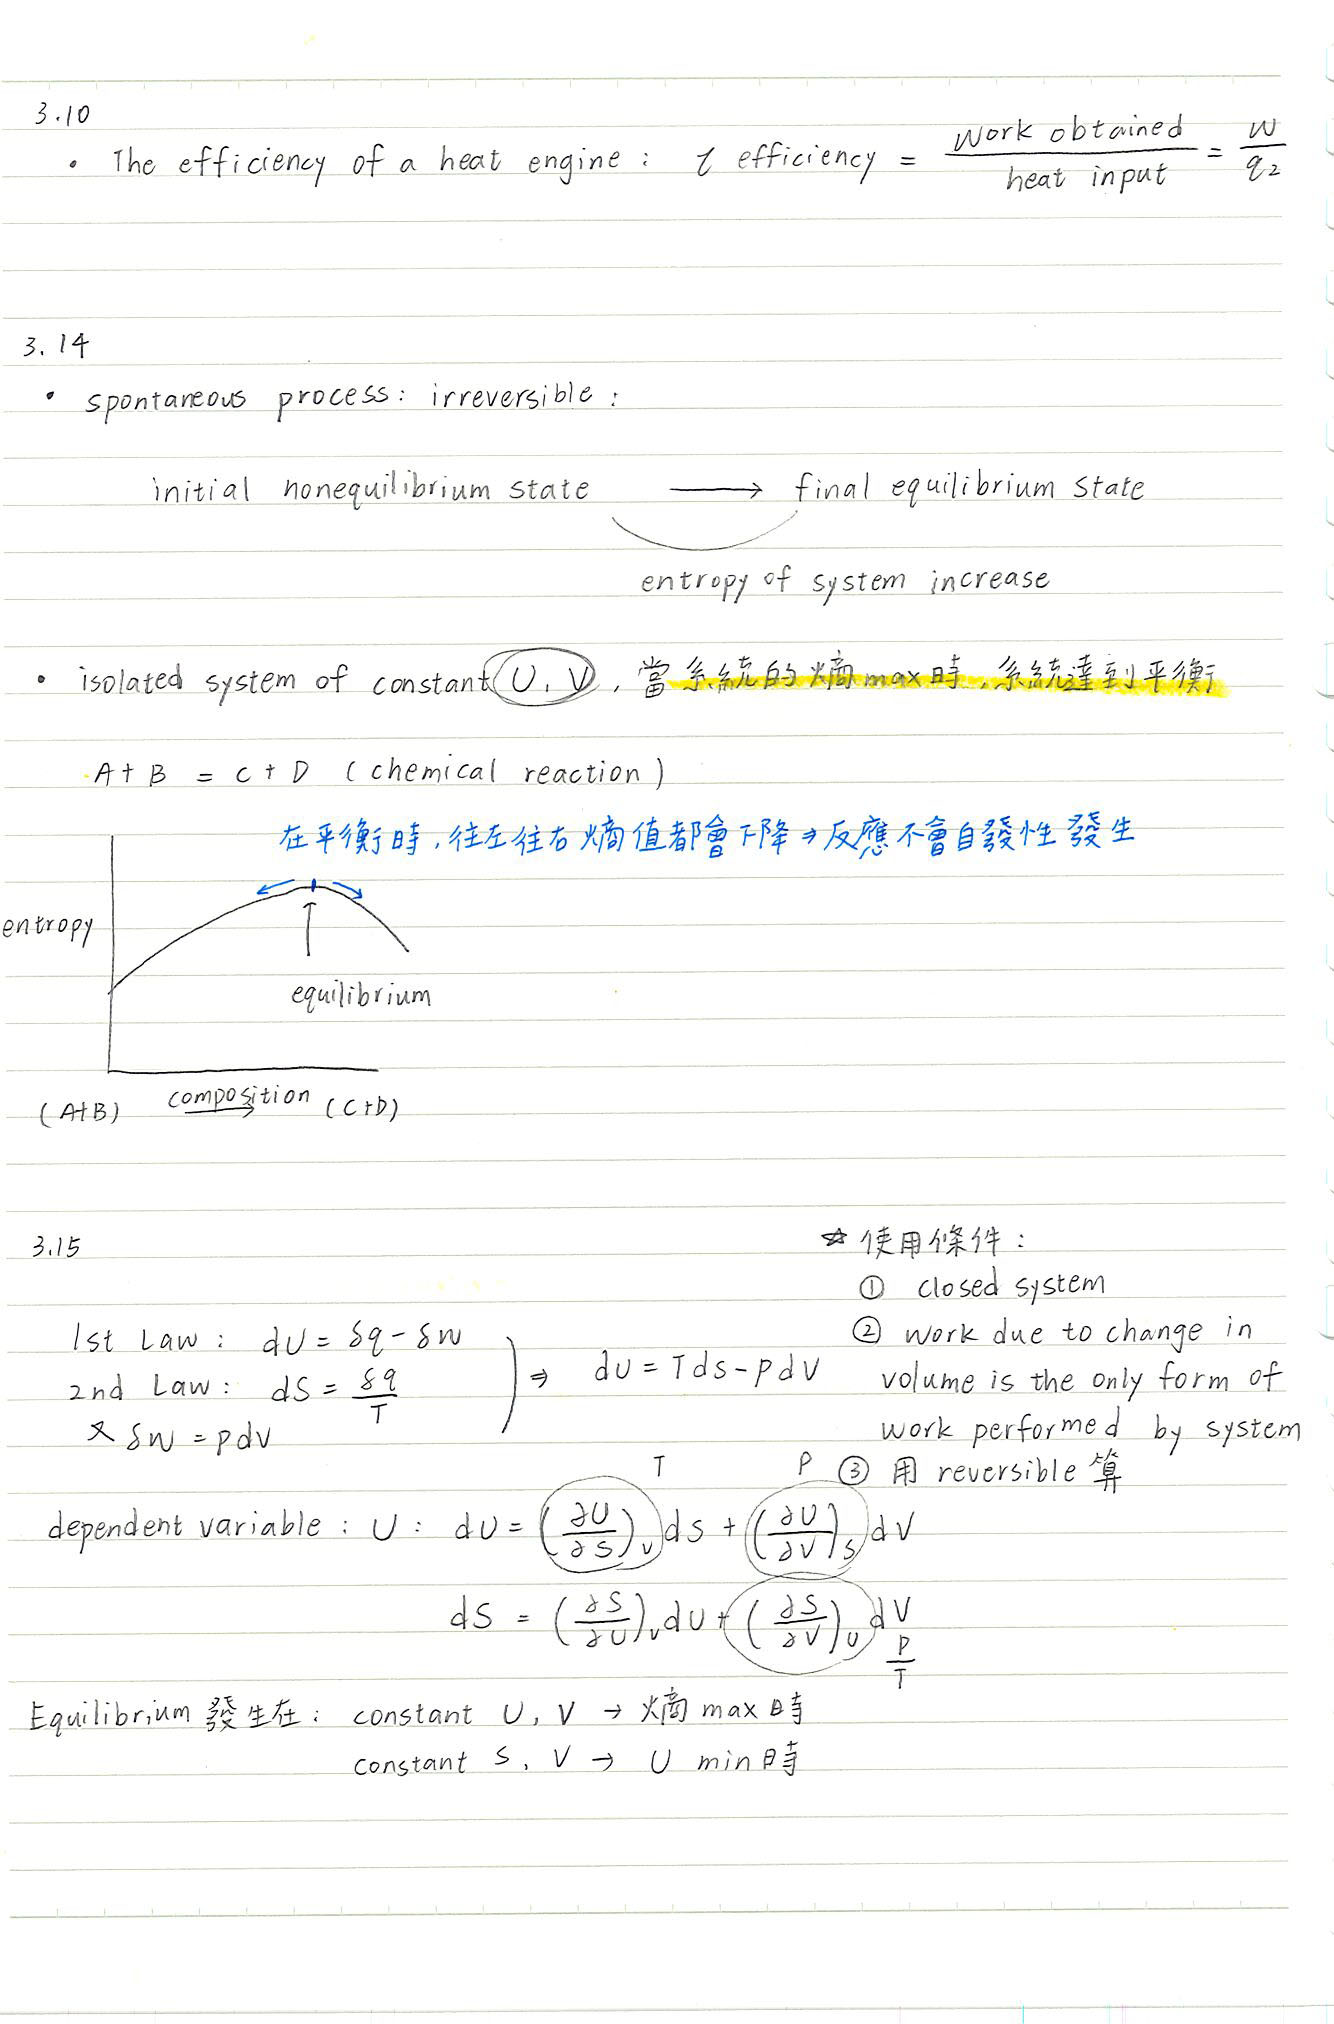 3.10
• The efficiency of a heat engine : η efficiency = work obtained / heat input = w / q₂
3.14
• spontaneous process : irreversible :
initial nonequilibrium state ⟶ final equilibrium state
entropy of system increase
• isolated system of constant U, V , 當系統的熵max時,系統達到平衡
A + B = C + D ( chemical reaction )
在平衡時,往左往右熵值都會下降⇒反應不會自發性發生
entropy
equilibrium
(A+B) composition (C+D)
3.15
☆ 使用條件 :
① closed system
② work due to change in
volume is the only form of
work performed by system
③ 用 reversible 算
1st Law : dU = δq - δw
2nd Law : dS = δq / T
又 δw = pdV
⇒ dU = Tds - pdV
T P
dependent variable : U : dU = (∂U/∂S)ᵥ ds + (∂U/∂V)ₛ dV
dS = (∂S/∂U)ᵥ dU + (∂S/∂V)ᵤ dV
P / T
Equilibrium 發生在 : constant U, V → 熵 max 時
constant S, V → U min 時